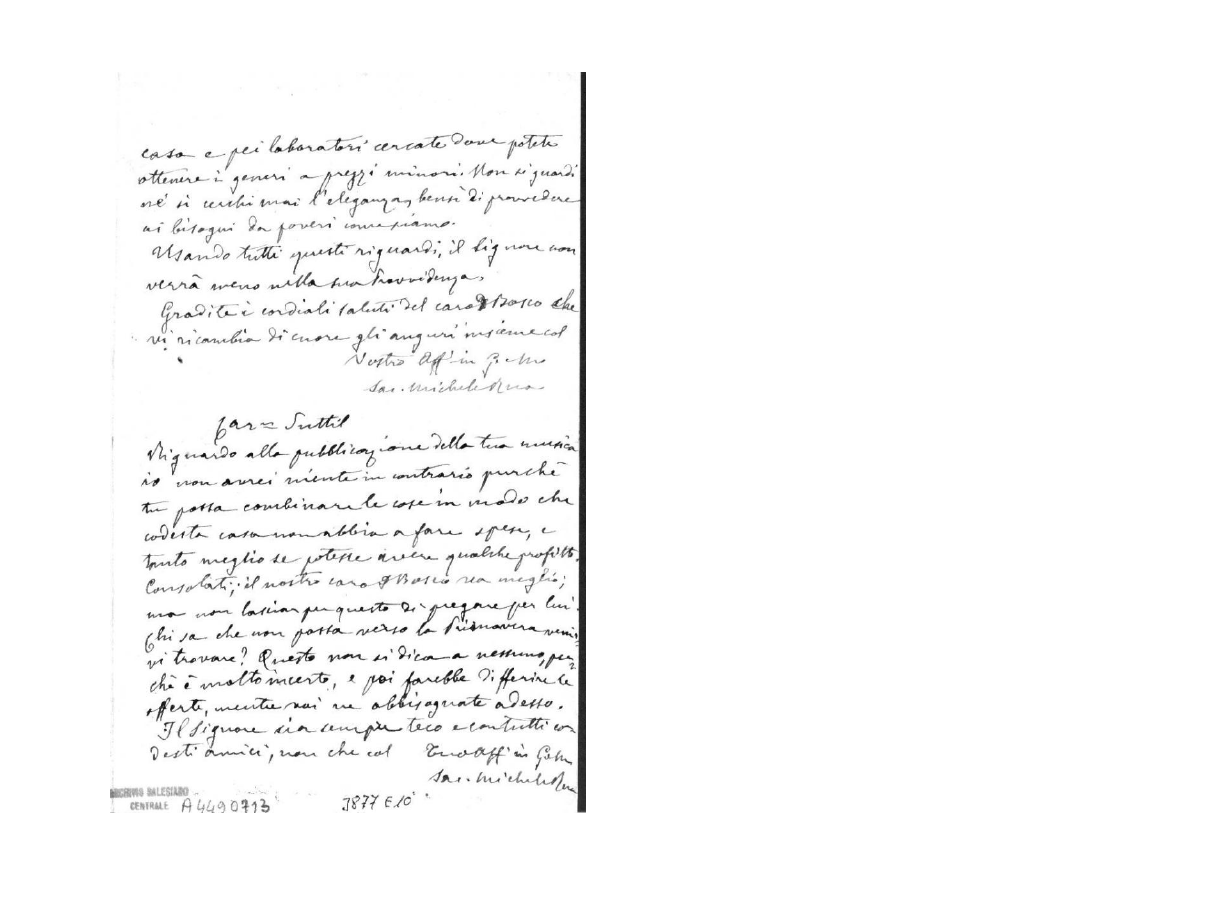 casa e pei laboratori cercate dove potete
ottenere i generi a prezzi minori. Non si guardi
nè si cerchi mai l'eleganza, bensì di provvedere
ai bisogni da poveri come siamo.
Usando tutti questi riguardi, il Signore non
verrà meno nella sua Provvidenza.
Gradite i cordiali saluti del caro D Bosco che
vi ricambia di cuore gli auguri insieme col
Vostro Aff in G e M
Sac. Michele Rua
Car Suttil
Riguardo alla pubblicazione della tua musica
io non avrei niente in contrario purchè
tu possa combinare le cose in modo che
codesta casa non abbia a fare spese, e
tanto meglio se potesse avere qualche profitto.
Consolati; il nostro caro D Bosco sta meglio;
ma non lasciar per questo di pregare per lui.
Chi sa che non possa verso la Primavera venir
vi trovare? Questo non si dica a nessuno, per
chè è molto incerto, e poi farebbe differire le
offerte, mentre voi ne abbisognate adesso.
Il Signore sia sempre teco e con tutti co
desti amici, non che col Tuo Aff in G e M
Sac. Michele Rua
ARCHIVIO SALESIANO
CENTRALE A4490713 3877 E10